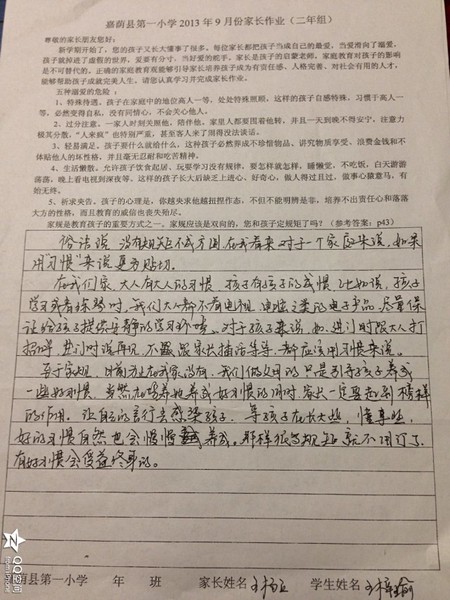 嘉荫县第一小学 2013 年 9 月份家长作业（二年组）
尊敬的家长朋友您好：
新学期开始了，您的孩子又长大懂事了很多。每位家长都把孩子当成自己的最爱，当爱滑向了溺爱，
孩子就掉进了虚假的世界，爱要有分寸，当好爱的舵手。家长是孩子的启蒙老师，家庭教育对孩子的影响
是不可替代的。正确的家庭教育观能够引导家长培养孩子成为有责任感、人格完善、对社会有用的人才，
能够帮助孩子成就完美人生。请您认真学习并完成家长作业。
五种溺爱的危险：
1、特殊待遇。孩子在家庭中的地位高人一等，处处特殊照顾，这样的孩子自感特殊，习惯于高人一
等，必然变得自私，没有同情心，不会关心他人。
2、过分注意。一家人时刻关照他，陪伴他。家里人都要围着他转，并且一天到晚不得安宁，注意力
极其分散，“人来疯”也特别严重，甚至客人来了闹得没法谈话。
3、轻易满足。孩子要什么就给什么。这种孩子必然养成不珍惜物品、讲究物质享受、浪费金钱和不
体贴他人的坏性格，并且毫无忍耐和吃苦精神。
4、生活懒散。允许孩子饮食起居、玩耍学习没有规律，要怎样就怎样，睡懒觉，不吃饭，白天游游
荡荡，晚上看电视到深夜等。这样的孩子长大后缺乏上进心、好奇心，做人得过且过，做事心猿意马，有
始无终。
5、祈求央告。孩子的心理是，你越央求他越扭捏作态，不但不能明辨是非，培养不出责任心和落落
大方的性格，而且教育的威信也丧失殆尽。
家规是教育孩子的重要方式之一。家规应该是双向的，您和孩子定规矩了吗？（参考答案：p43）
俗话说 没有规矩不成方圆，在我看来对于一个家庭来说，如果
用“习惯”来说更为贴切。
在我们家，大人有大人的习惯 孩子有孩子的习惯，比如说，孩子
学习或者练琴时，我们大人都不看电视，电脑之类的电子产品，尽量保
证给孩子提供安静的学习环境。对于孩子来说，如，进门时跟大人打
招呼，出门时说再见，不跟家长插话等等，都应该用习惯来说。
至于家规，目前为止在我家没有，我们做父母的只是引导孩子养成
一些好习惯，当然在培养他养成好习惯的同时，家长一定要起到榜样
的作用，让自己的言行去感染孩子，等孩子在长大些，懂事些，
好的习惯自然也会慢慢养成。那样很多规矩就不用订了，
有好习惯会受益终身的。
荫县第一小学 年 班 家长姓名 学生姓名